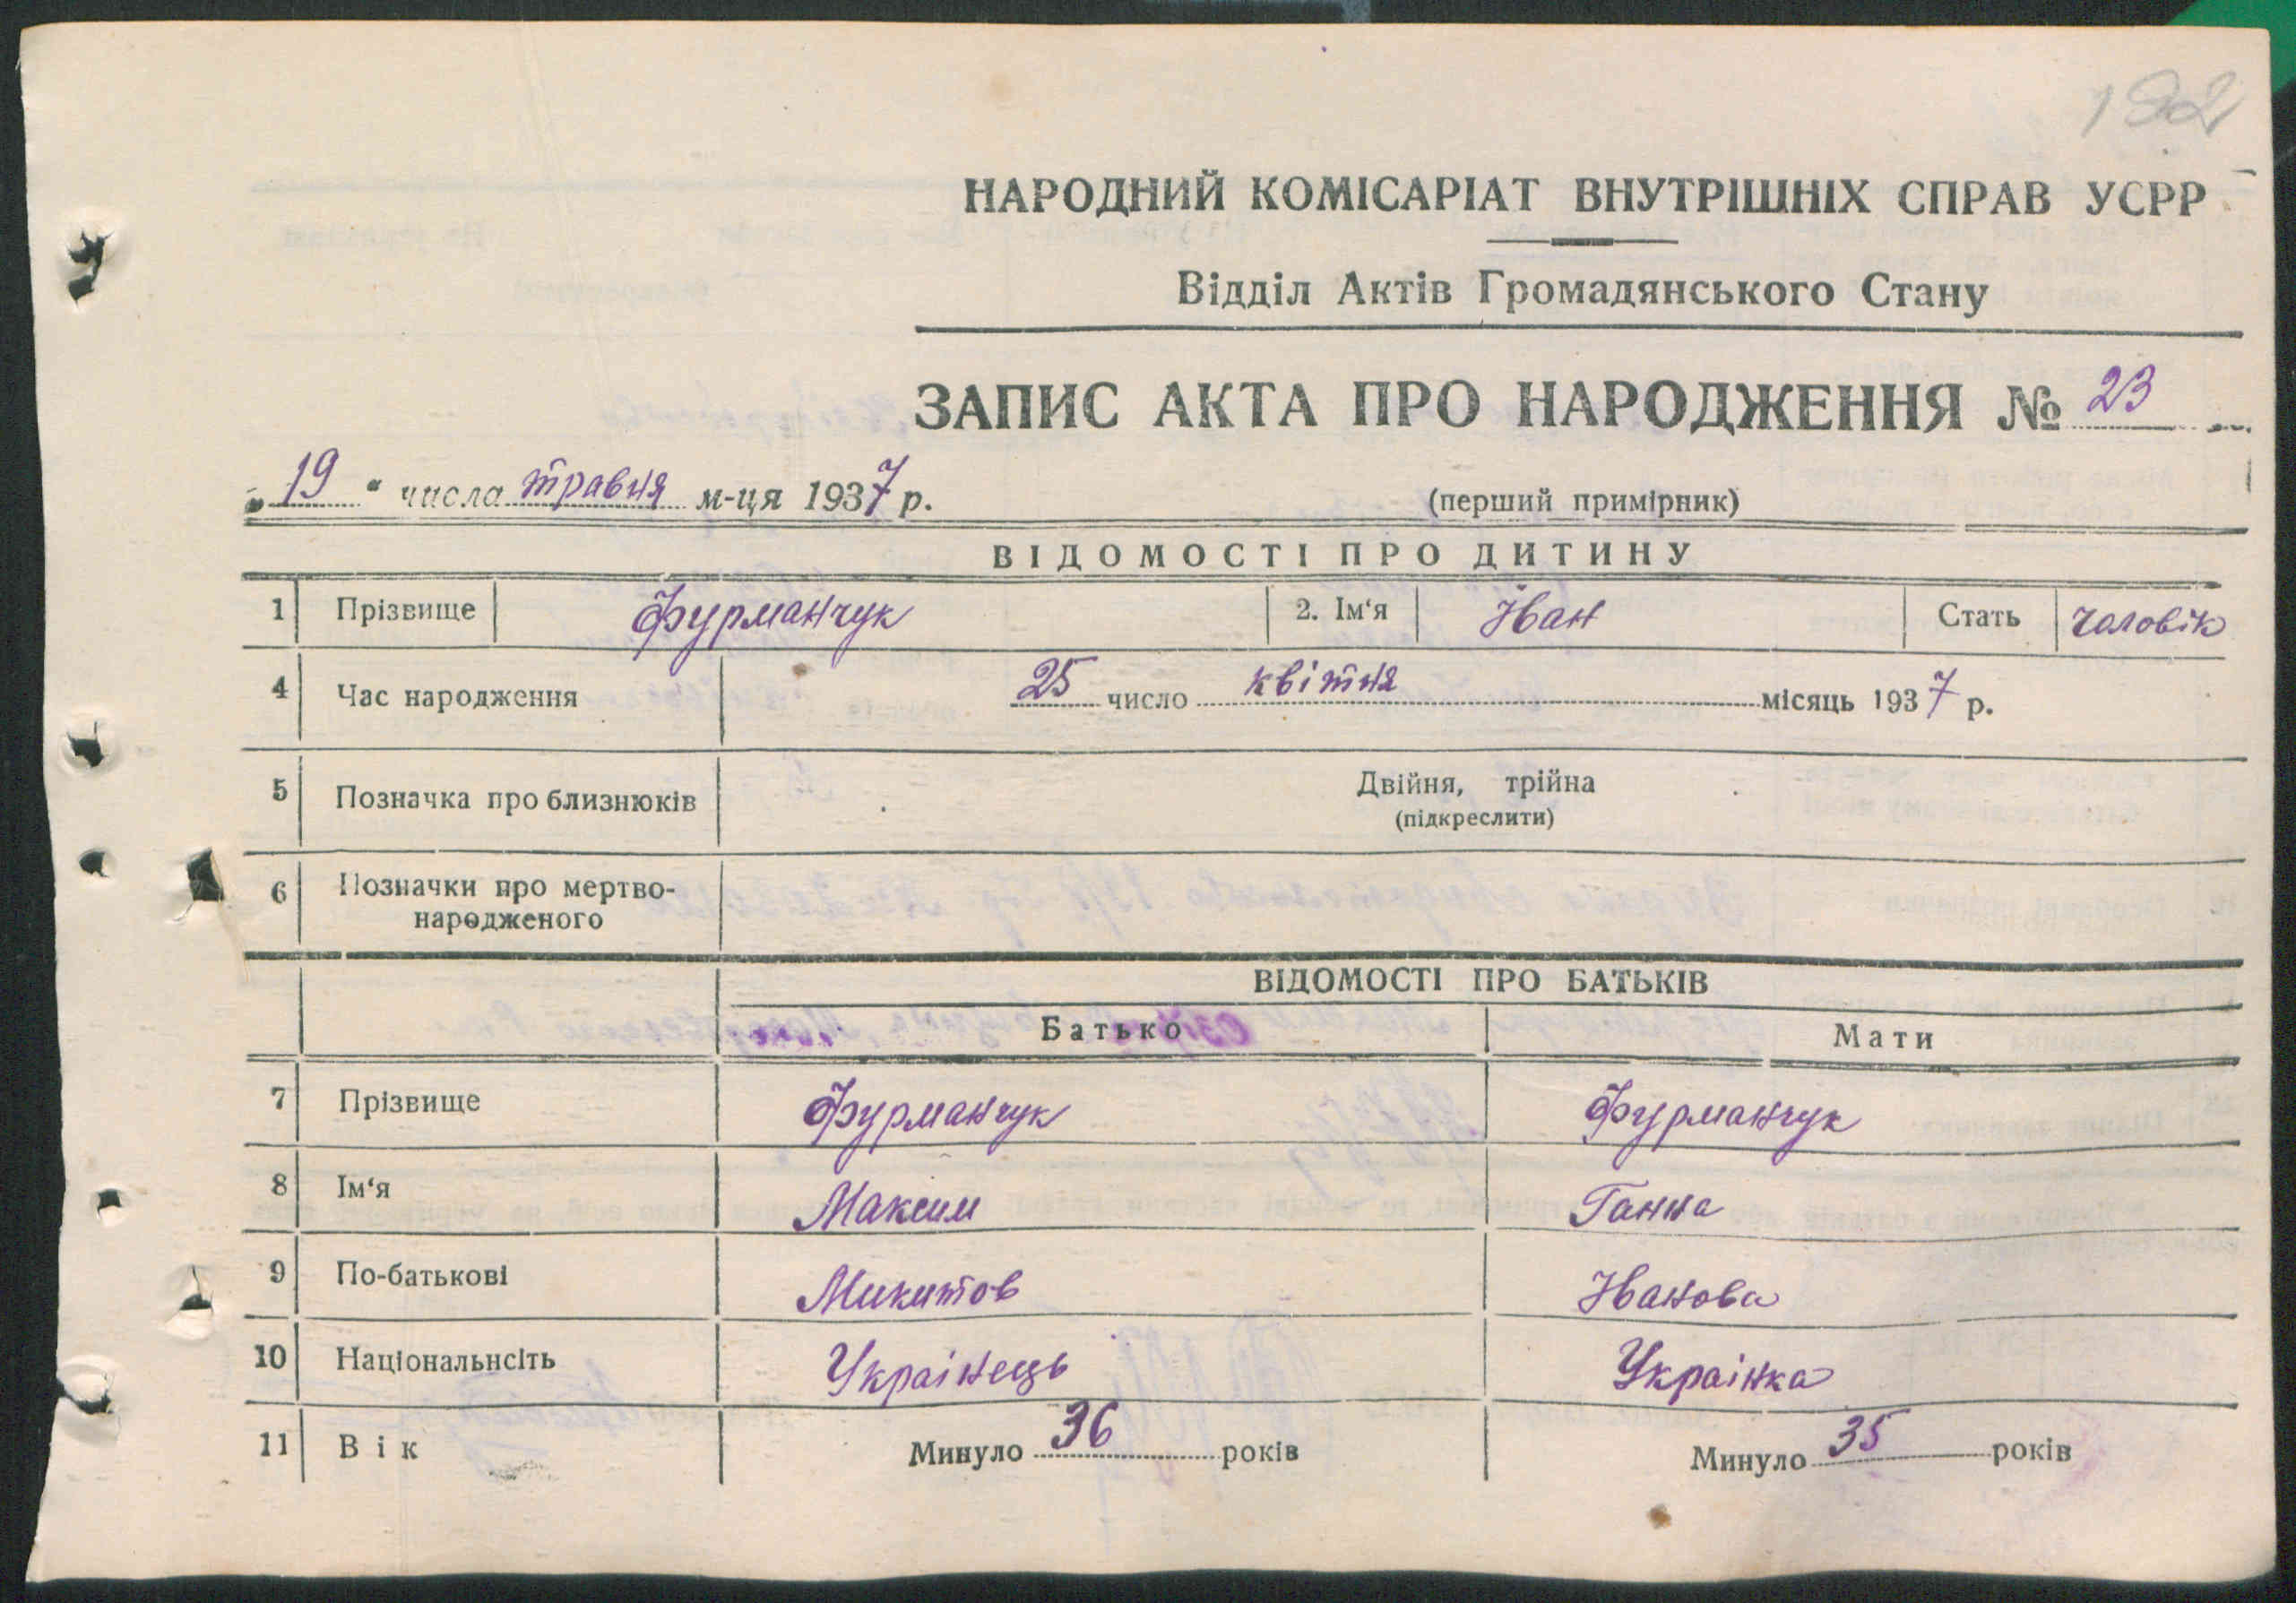 192
НАРОДНИЙ КОМІСАРІАТ ВНУТРІШНІХ СПРАВ УСРР
Відділ Актів Громадянського Стану
ЗАПИС АКТА ПРО НАРОДЖЕННЯ № 23
„19“ числа травня м-ця 1937 р. (перший примірник)
ВІДОМОСТІ ПРО ДИТИНУ
1 Прізвище Фурманчук 2. Ім‘я Іван Стать чоловік
4 Час народження 25 число квітня місяць 1937 р.
5 Позначка про близнюків Двійня, трійна
(підкреслити)
6 Позначки про мертво-
народженого
ВІДОМОСТІ ПРО БАТЬКІВ
Батько Мати
7 Прізвище Фурманчук Фурманчук
8 Ім‘я Максим Ганна
9 По-батькові Микитов Іванова
10 Національнсіть Українець Українка
11 Вік Минуло 36 років Минуло 35 років